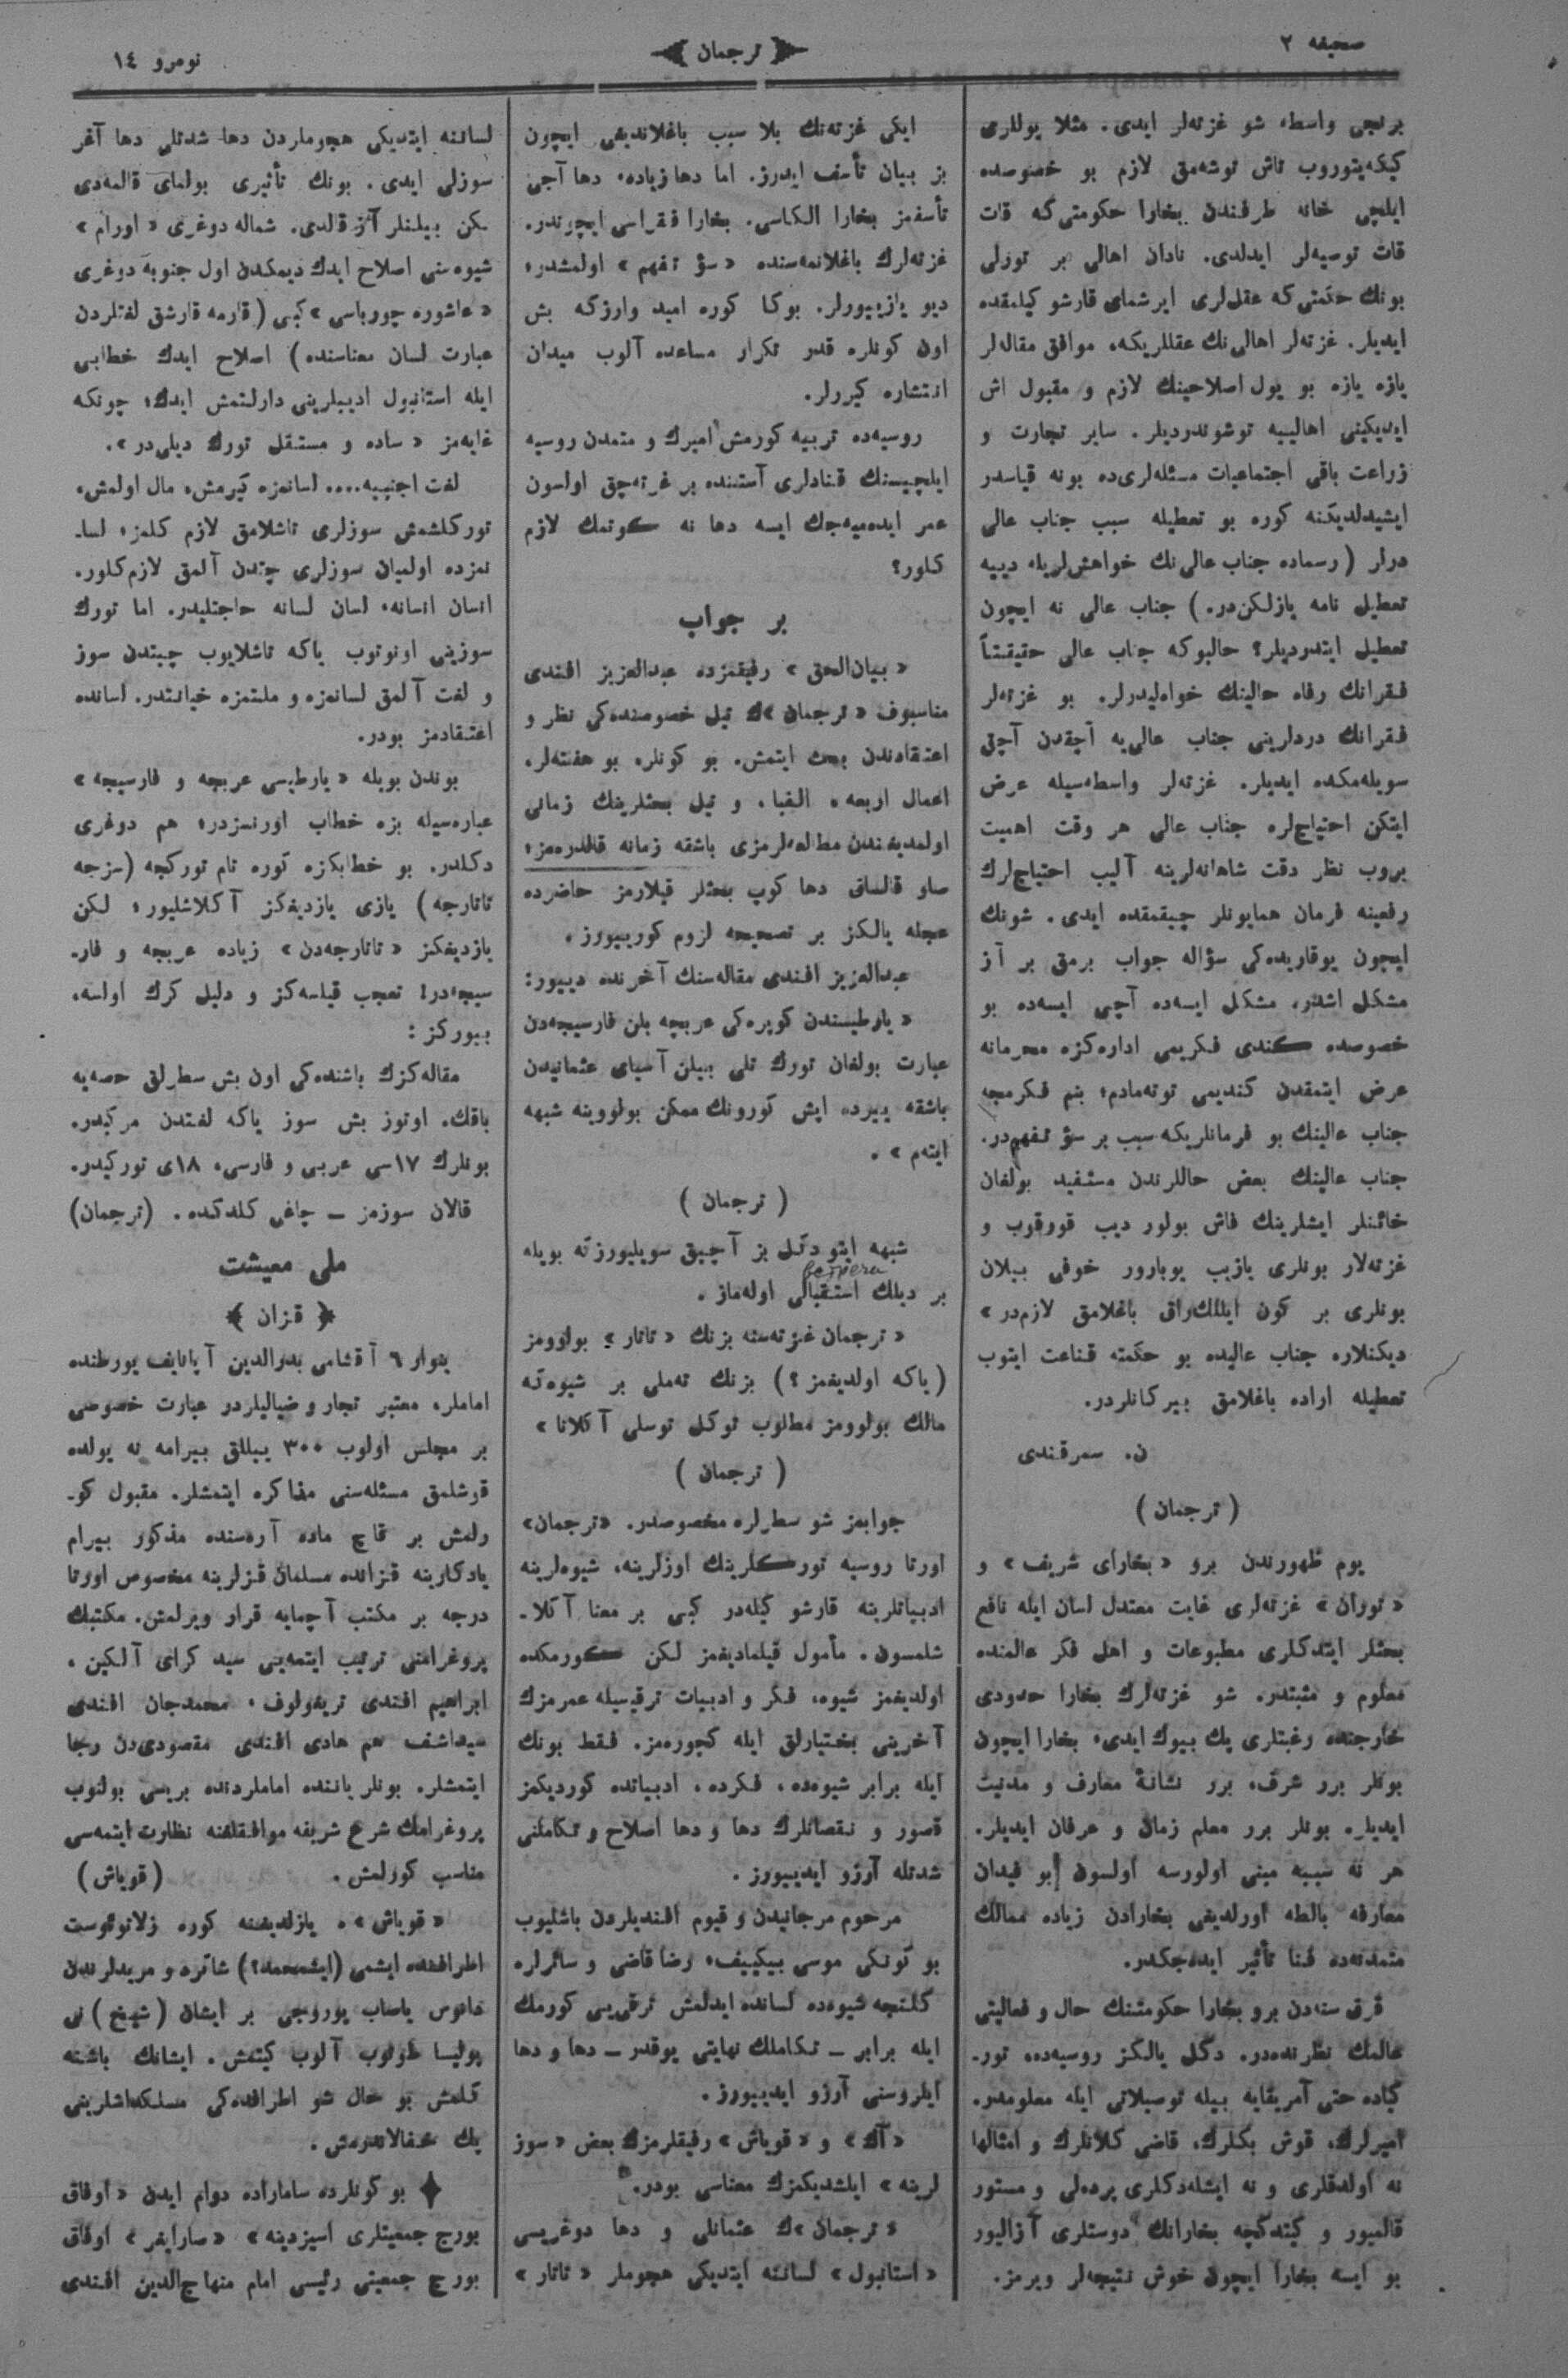 صحیفه ۲
ترجمان
نومرو ۱٤
برنجی واسطه شو غزته‌لر ایدی. مثلا یوللری
کیکه‌یتوروب تاش توشه‌مق لازم بو خصوصده
ایلچی خانه طرفندن بخارا حکومتی‌گه قات
قات توسیه‌لر ایدلدی. نادان اهالی بر توزلی
بونك حکمتی‌که عقل‌لری ایرشمای قارشو کیلمقده
ایدیلر. غزته‌لر اهالی‌نك عقللریکه، موافق مقاله‌لر
یازه یازه بو یول اصلاحینك لازم و مقبول اش
ایدیکینی اهالییه توشوندردیلر. سایر تجارت و
زراعت باقی اجتماعیات مسئله‌لری‌ده بونه قیاسدر
ایشیدلدیکنه کوره بو تعطیله سبب جناب عالی
درلر (رسماده جناب عالی‌نك خواهش‌لریله دییه
تعطیل نامه یازلکن‌در.) جناب عالی نه ایچون
تعطیل ایتدردیلر؟ حالبوکه جناب عالی حقیقتاً
فقرانك رفاه حالینك خواه‌لیدرلر. بو غزته‌لر
فقرانك دردلرینی جناب عالی‌یه آچقدن آچق
سویله‌مکده ایدیلر. غزته‌لر واسطه‌سیله عرض
ایتکن احتیاج‌لره جناب عالی هر وقت اهمیت
بروب نظر دقت شاهانه‌لرینه آلیب احتیاج‌لرك
رفعینه فرمان همایونلر چیقمقده ایدی. شونك
ایچون یوقاریده‌کی سؤاله جواب برمق بر آز
مشکل اشدر، مشکل ایسه‌ده آچی ایسه‌ده بو
خصوصده کندی فکریمی اداره‌کزه محرمانه
عرض ایتمقدن کندیمی توته‌مادم؛ بنم فکرمچه
جناب عالینك بو فرمانلریکه سبب بر سؤ تفهم‌در.
جناب عالینك بعض حاللرندن مستفید بولغان
خائنلر ایشلرینك فاش بولور دیب قورقوب و
غزته‌لار بونلری یازیب یوبارور خوفی بیلان
بونلری بر کون ایللك‌راق باغلامق لازم‌در»
دیکنلاره جناب عالیده بو حکمته قناعت ایتوب
تعطیله اراده باغلامق بیرکانلردر.
ن. سمرقندی
(ترجمان)
یوم ظهورندن برو «بخارای شریف» و
«توران» غزته‌لری غایت معتدل لسان ایله نافع
بحثلر ایتدکلری مطبوعات و اهل فکر عالمنده
معلوم و مثبتدر. شو غزته‌لرك بخارا حدودی
خارجنده رغبتلری پك بیوك ایدی، بخارا ایچون
بونلر برر شرف، برر نشانهٔ معارف و مدنیت
ایدیلر. بونلر برر معلم زمان و عرفان ایدیلر.
هر نه سببه مبنی اولورسه اولسون بو فیدان
معارفه بالطه اورلدیغی بخارادن زیاده ممالك
متمدنه‌ده فنا تأثیر ایده‌جکدر.
قرق سنه‌دن برو بخارا حکومتنك حال و فعالیتی
عالمك نظرنده‌در. دکل یالکز روسیه‌ده، تور-
کیاده حتی آمریقایه بیله توصیلاتی ایله معلومدر.
امیرلرك، قوش بکلرك، قاضی کلانلرك و امثالها
نه اولدقلری و نه ایشله‌دکلری پرده‌لی و مستور
قالمیور و کیتدکچه بخارانك دوستلری آزالیور
بو ایسه بخارا ایچون خوش نتیجه‌لر ویرمز.
ایکی غزته‌نك بلا سبب باغلاندیغی ایچون
بز بیان تأسف ایدرز. اما دها زیاده، دها آجی
تأسفمز بخارا الکاسی. بخارا فقراسی ایچوندر.
غزته‌لرك باغلانمه‌سنده «سؤ تفهم» اولمشدر؛
دیو یازییورلر. بوکا کوره امید وارزکه بش
اون کونلره قدر تکرار مساعده آلوب میدان
انتشاره کیررلر.
روسیه‌ده تربیه کورمش امیرك و متمدن روسیه
ایلچیسنك قنادلری آستنده بر غزته‌چق اولسون
عمر ایده‌میه‌جك ایسه دها نه کوتمك لازم
کلور؟
بر جواب
«بیان‌الحق» رفیقمزده عبدالعزیز افندی
مناسبوف «ترجمان»ك تیل خصوصنده‌کی نظر و
اعتقادندن بحث ایتمش. بو کونلر، بو هفته‌لر،
اعمال اربعه، الفبا، و تیل بحثلرینك زمانی
اولمدیغندن مطالعه‌لرمزی باشقه زمانه قالدره‌مز؛
صاو قالساق دها کوپ بحثلر قیلارمز حاضرده
عجله یالکز بر تصحیحه لزوم کورییورز.
عبدالعزیز افندی مقاله‌سنك آخرنده دییور:
«یارطیسندن کوبره‌کی عربچه بلن فارسیچه‌دن
عبارت بولغان تورك تلی بیلن آسیای عثمانیدن
باشقه ییرده ایش کورونك ممکن بولووینه شبهه
ایته‌م».
(ترجمان)
شبهه ایتو دکل بز آچیق سویلیورزکه بویله
встреча
بر دیلك استقبالی اوله‌ماز.
«ترجمان غزته‌سنه بزنك «تاتار» بولوومز
(یاکه اولدیغمز؟) بزنك ته‌ملی بر شیوه‌گه
مالك بولوومز مطلوب توکل توسلی آکلانا»
(ترجمان)
جوابمز شو سطرلره مخصوصدر. «ترجمان»
اورتا روسیه تورکلرینك اوزلرینه، شیوه‌لرینه
ادبیاتلرینه قارشو کیله‌در کبی بر معنا آکلا-
شلمسون. مأمول قیلمادیغمز لکن کورمکده
اولدیغمز شیوه، فکر و ادبیات ترقیسیله عمرمزك
آخرینی بختیارلق ایله کچوره‌مز. فقط بونك
ایله برابر شیوه‌ده، فکرده، ادبیاتده کوردیکمز
قصور و نقصانلرك دها و دها اصلاح و تکاملنی
شدتله آرزو ایدییورز.
مرحوم مرجانیدن و قیوم افندیلردن باشلیوب
بو کونکی موسی بیکییف، رضا قاضی و سائرلره
کلنجه شیوه‌ده لسانده ایدلمش ترقی‌یی کورمك
ایله برابر – تکاملك نهایتی یوقدر – دها و دها
ایلروسنی آرزو ایدییورز.
«آك» و «قویاش» رفیقلرمزك بعض «سوز
لرینه» ایلشدیکمزك معناسی بودر.
«ترجمان»ك عثمانلی و دها دوغریسی
«استانبول» لساننه ایتدیکی هجوملر «تاتار»
لساننه ایتدیکی هجوملردن دها شدتلی دها آغر
سوزلی ایدی. بونك تأثیری بولمای قالمه‌دی
لکن بیلنلر آز قالدی. شماله دوغری «اورام»
شیوه‌سنی اصلاح ایدك دیمکدن اول جنوبه دوغری
«عاشوره چورباسی» کبی (قارمه قارشق لغتلردن
عبارت لسان معناسنده) اصلاح ایدك خطابی
ایله استانبول ادیبلرینی دارلتمش ایدك؛ چونکه
غایه‌مز «ساده و مستقل تورك دیلی‌در».
لغت اجنبیه.... لسانمزه کیرمش، مال اولمش،
تورکلشمش سوزلری تاشلامق لازم کلمز؛ لسا-
نمزده اولمیان سوزلری چتدن آلمق لازم کلور.
انسان انسانه، لسان لسانه حاجتلیدر. اما تورك
سوزینی اونوتوب یاکه تاشلایوب چیتدن سوز
و لغت آلمق لسانمزه و ملتمزه خیانتدر. لسانده
اعتقادمز بودر.
بوندن بویله «یارطیسی عربچه و فارسیچه»
عباره‌سیله بزه خطاب اورنسزدر؛ هم دوغری
دکلدر. بو خطابکزه کوره تام تورکچه (سزجه
تاتارچه) یازی یازدیغکز آکلاشلیور؛ لکن
یازدیغکز «تاتارچه‌دن» زیاده عربچه و فار-
سیچه‌در! تعجب قیلسه‌کز و دلیل کرك اولسه،
بیورکز:
مقاله‌کزك باشنده‌کی اون بش سطرلق حصه‌یه
باقك. اوتوز بش سوز یاکه لغتدن مرکبدر.
بونلرك ۱۷سی عربی و فارسی، ۱۸ی تورکیدر.
قالان سوزمز – چاغی کلدکده. (ترجمان)
ملی معیشت
﴿ قزان ﴾
ینوار ٦ آقشامی بدرالدین آپانایف یورطنده
اماملر، معتبر تجار و ضیالیلردن عبارت خصوصی
بر مجلس اولوب ۳۰۰ ییللق بیرامه نه یولده
قرشلمق مسئله‌سنی مذاکره ایتمشلر. مقبول کو-
رلمش بر قاچ ماده آره‌سنده مذکور بیرام
یادکارینه قزانده مسلمان قزلرینه مخصوص اورتا
درجه بر مکتب آچمایه قرار ویرلمش. مکتبك
پروغرامنی ترتیب ایتمه‌یی سید کرای آلکین،
ابراهیم افندی تریغولوف، محمدجان افندی
سیداشف هم هادی افندی مقصودی‌دن رجا
ایتمشلر. بونلر یاننده اماملردنده بریسی بولنوب
پروغرامك شرع شریفه موافقلغنه نظارت ایتمه‌سی
مناسب کورلمش. (قویاش)
«قویاش»ه یازلدیغنه کوره زلاتوئوست
اطرافنده ایشمی (ایشمحمد؟) شاکرد و مریدلرندن
یوروچی بر ایشان (شیخ) نی
پولیسا طوتوب آلوب کیتمش. ایشانك باشنه
کلمش بو حال شو اطرافده‌کی مسلکداشلرینی
پك خفالاندرمش.
بو کونلرده سامارادە دوام ایدن «اوفاق
بورج جمعیتلری اسیزدینه» «صارایغر» اوفاق
بورج جمعیتی رئیسی امام منهاج‌الدین افندی